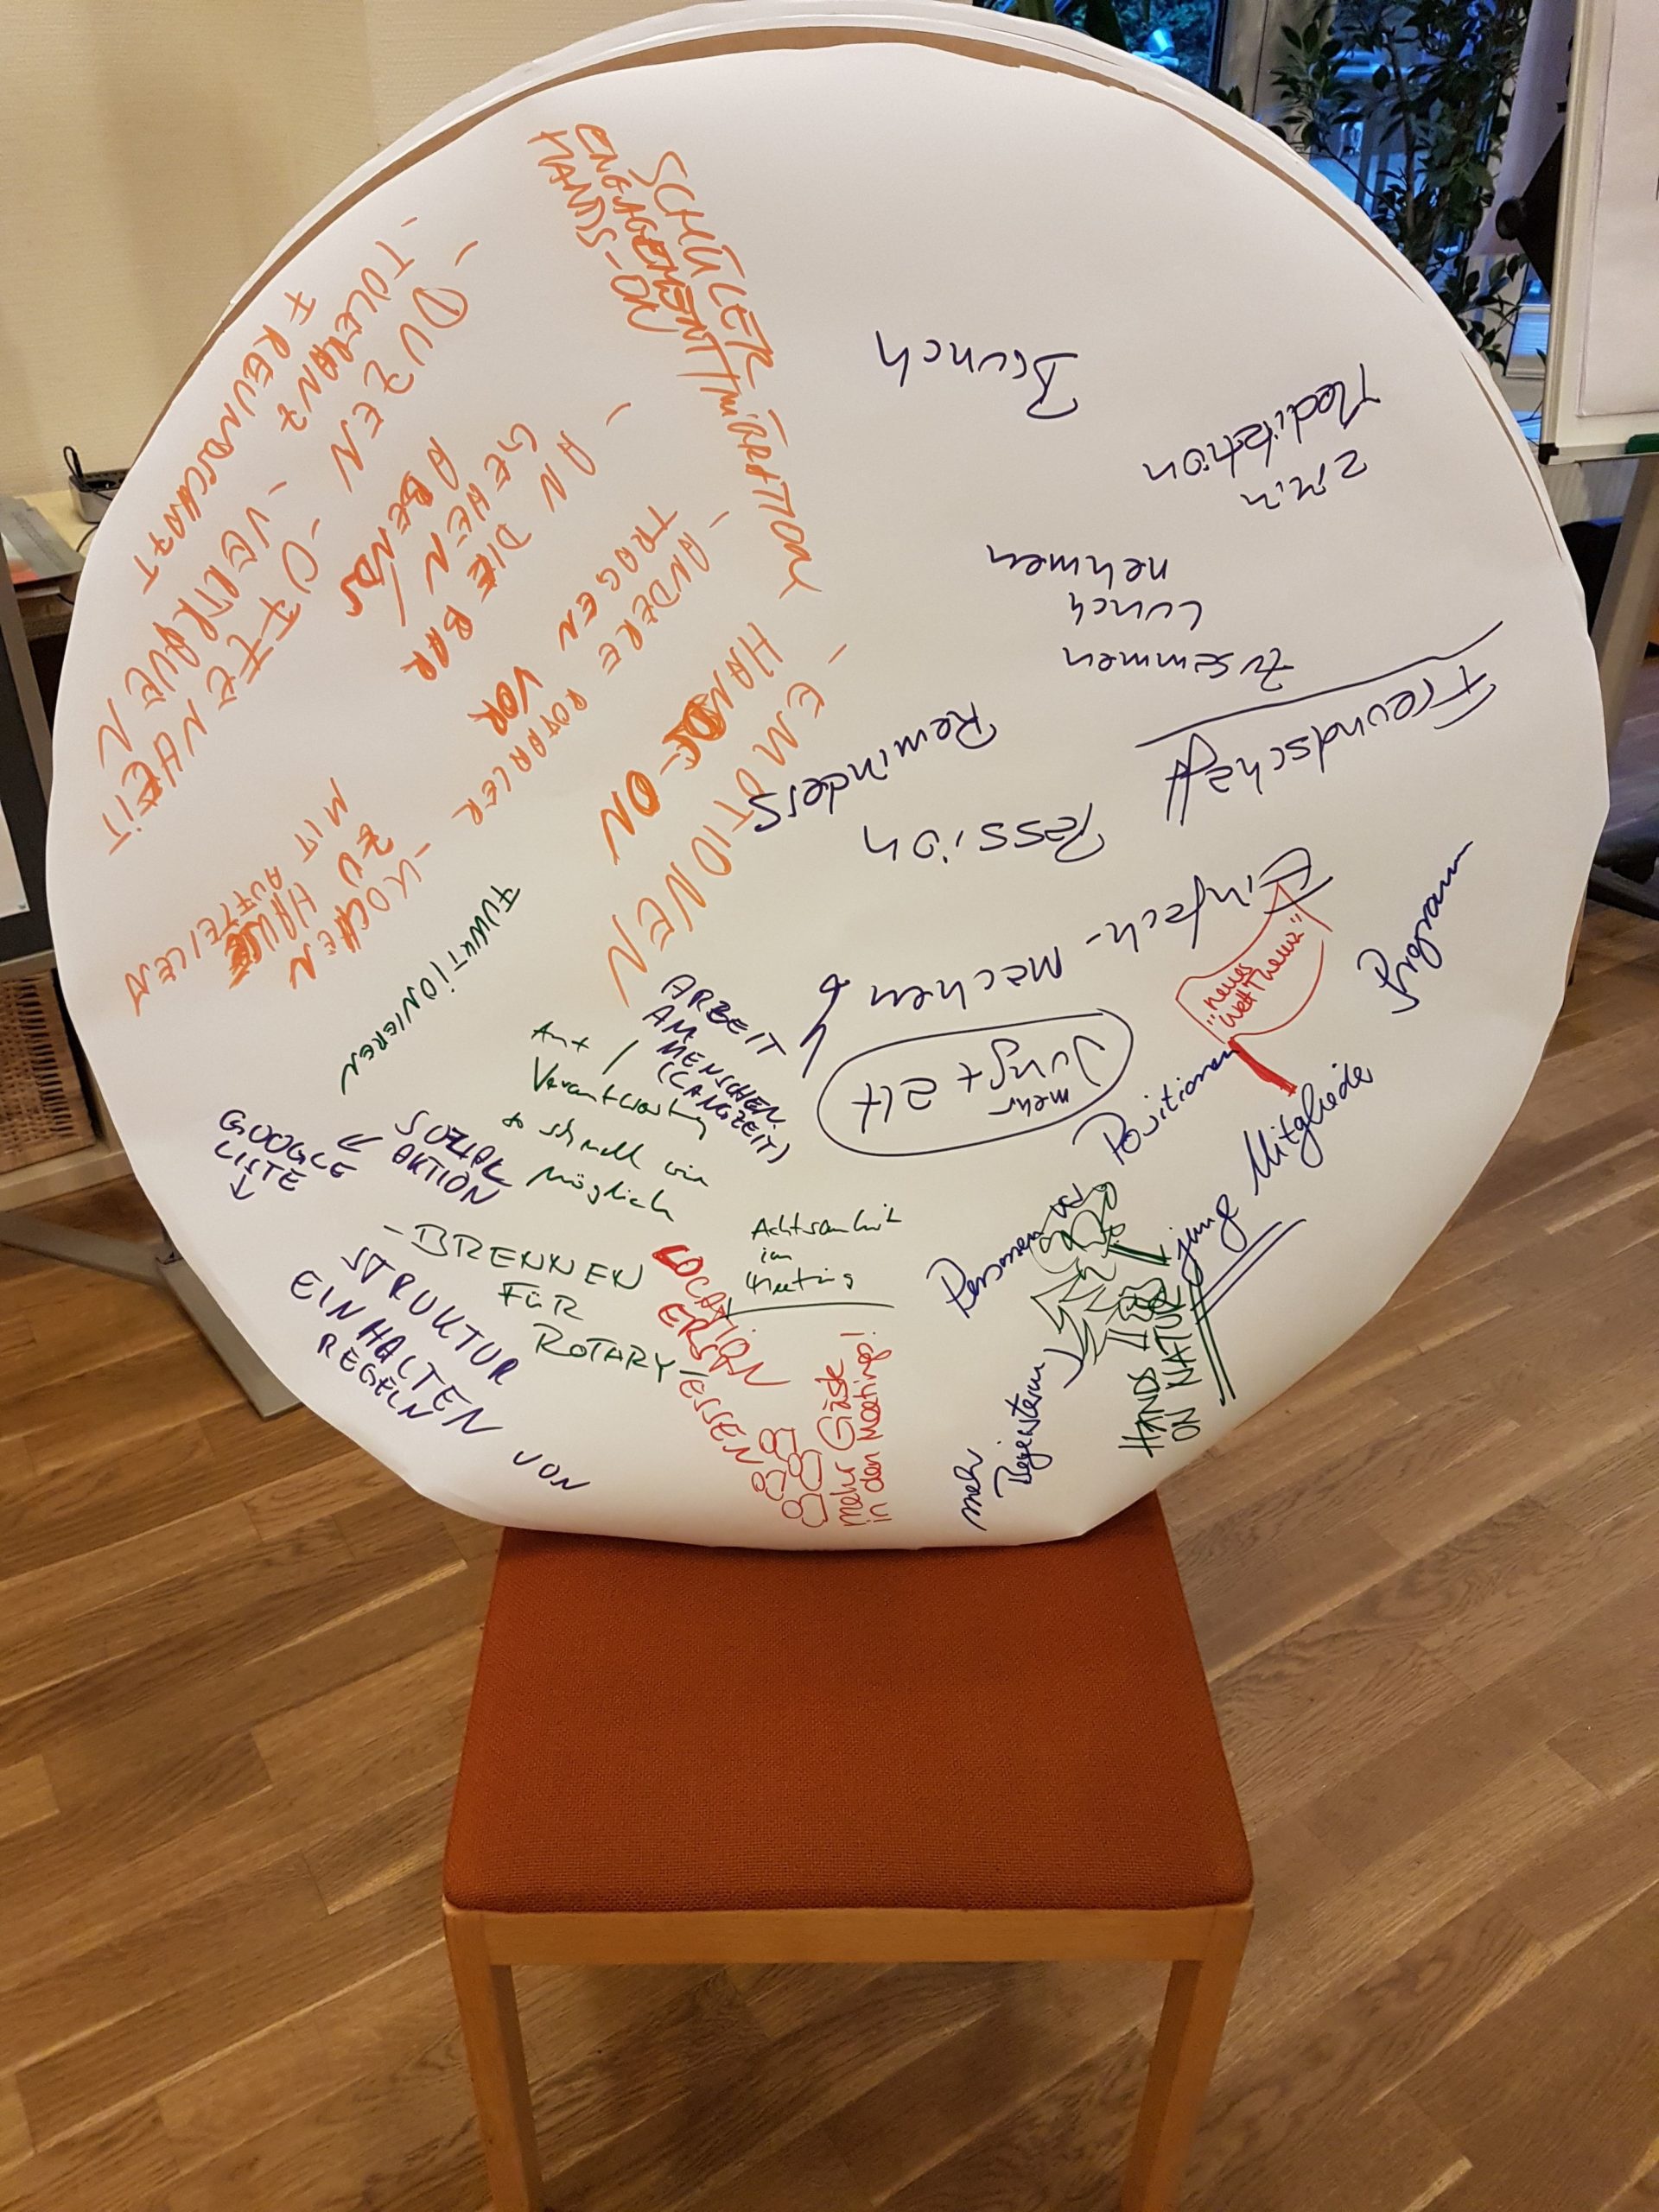 SCHÜLER
ENGAGEMENT
HANDS-ON
- DUZEN
- TOLERANZ
FREUNDSCHAFT
- VERTRAUEN
- OFFENHEIT
- AN DIE BAR
GEHEN
ABENDS
- ANDERE ROTARIER
TRAGEN VOR
- EMOTIONEN
HANDS-ON
- KOCHEN
ZU HAUSE
MIT AUFTEILEN
Brunch
2 Min
Meditation
Freundschaft
Zusammen
Lunch
nehmen
Reminders
Passion
Einfach-machen
mehr
Jung + alt
"neues
Welt Thema"
Programm
Positionen
Personen
junge Mitglieder
mehr
Begeisterung
HANDS
ON NATUR
FUNKTIONIEREN
ARBEIT
AM
MENSCHEN
(LANGZEIT)
Amt /
Verantwortung
so schnell wie
möglich
SOZIAL
AKTION
GOOGLE
LISTE
- BRENNEN
FÜR
ROTARY -
Achtsamkeit
im
Meeting
STRUKTUR
EINHALTEN VON
REGELN
LOCATION
ESSEN
mehr Gäste
in den Meeting!